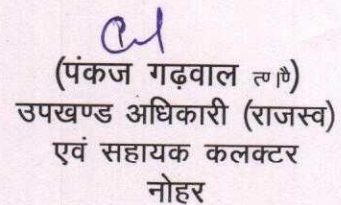 (पंकज गढ़वाल त्ण।ैण्)
उपखण्ड अधिकारी (राजस्व)
एवं सहायक कलक्टर
नोहर